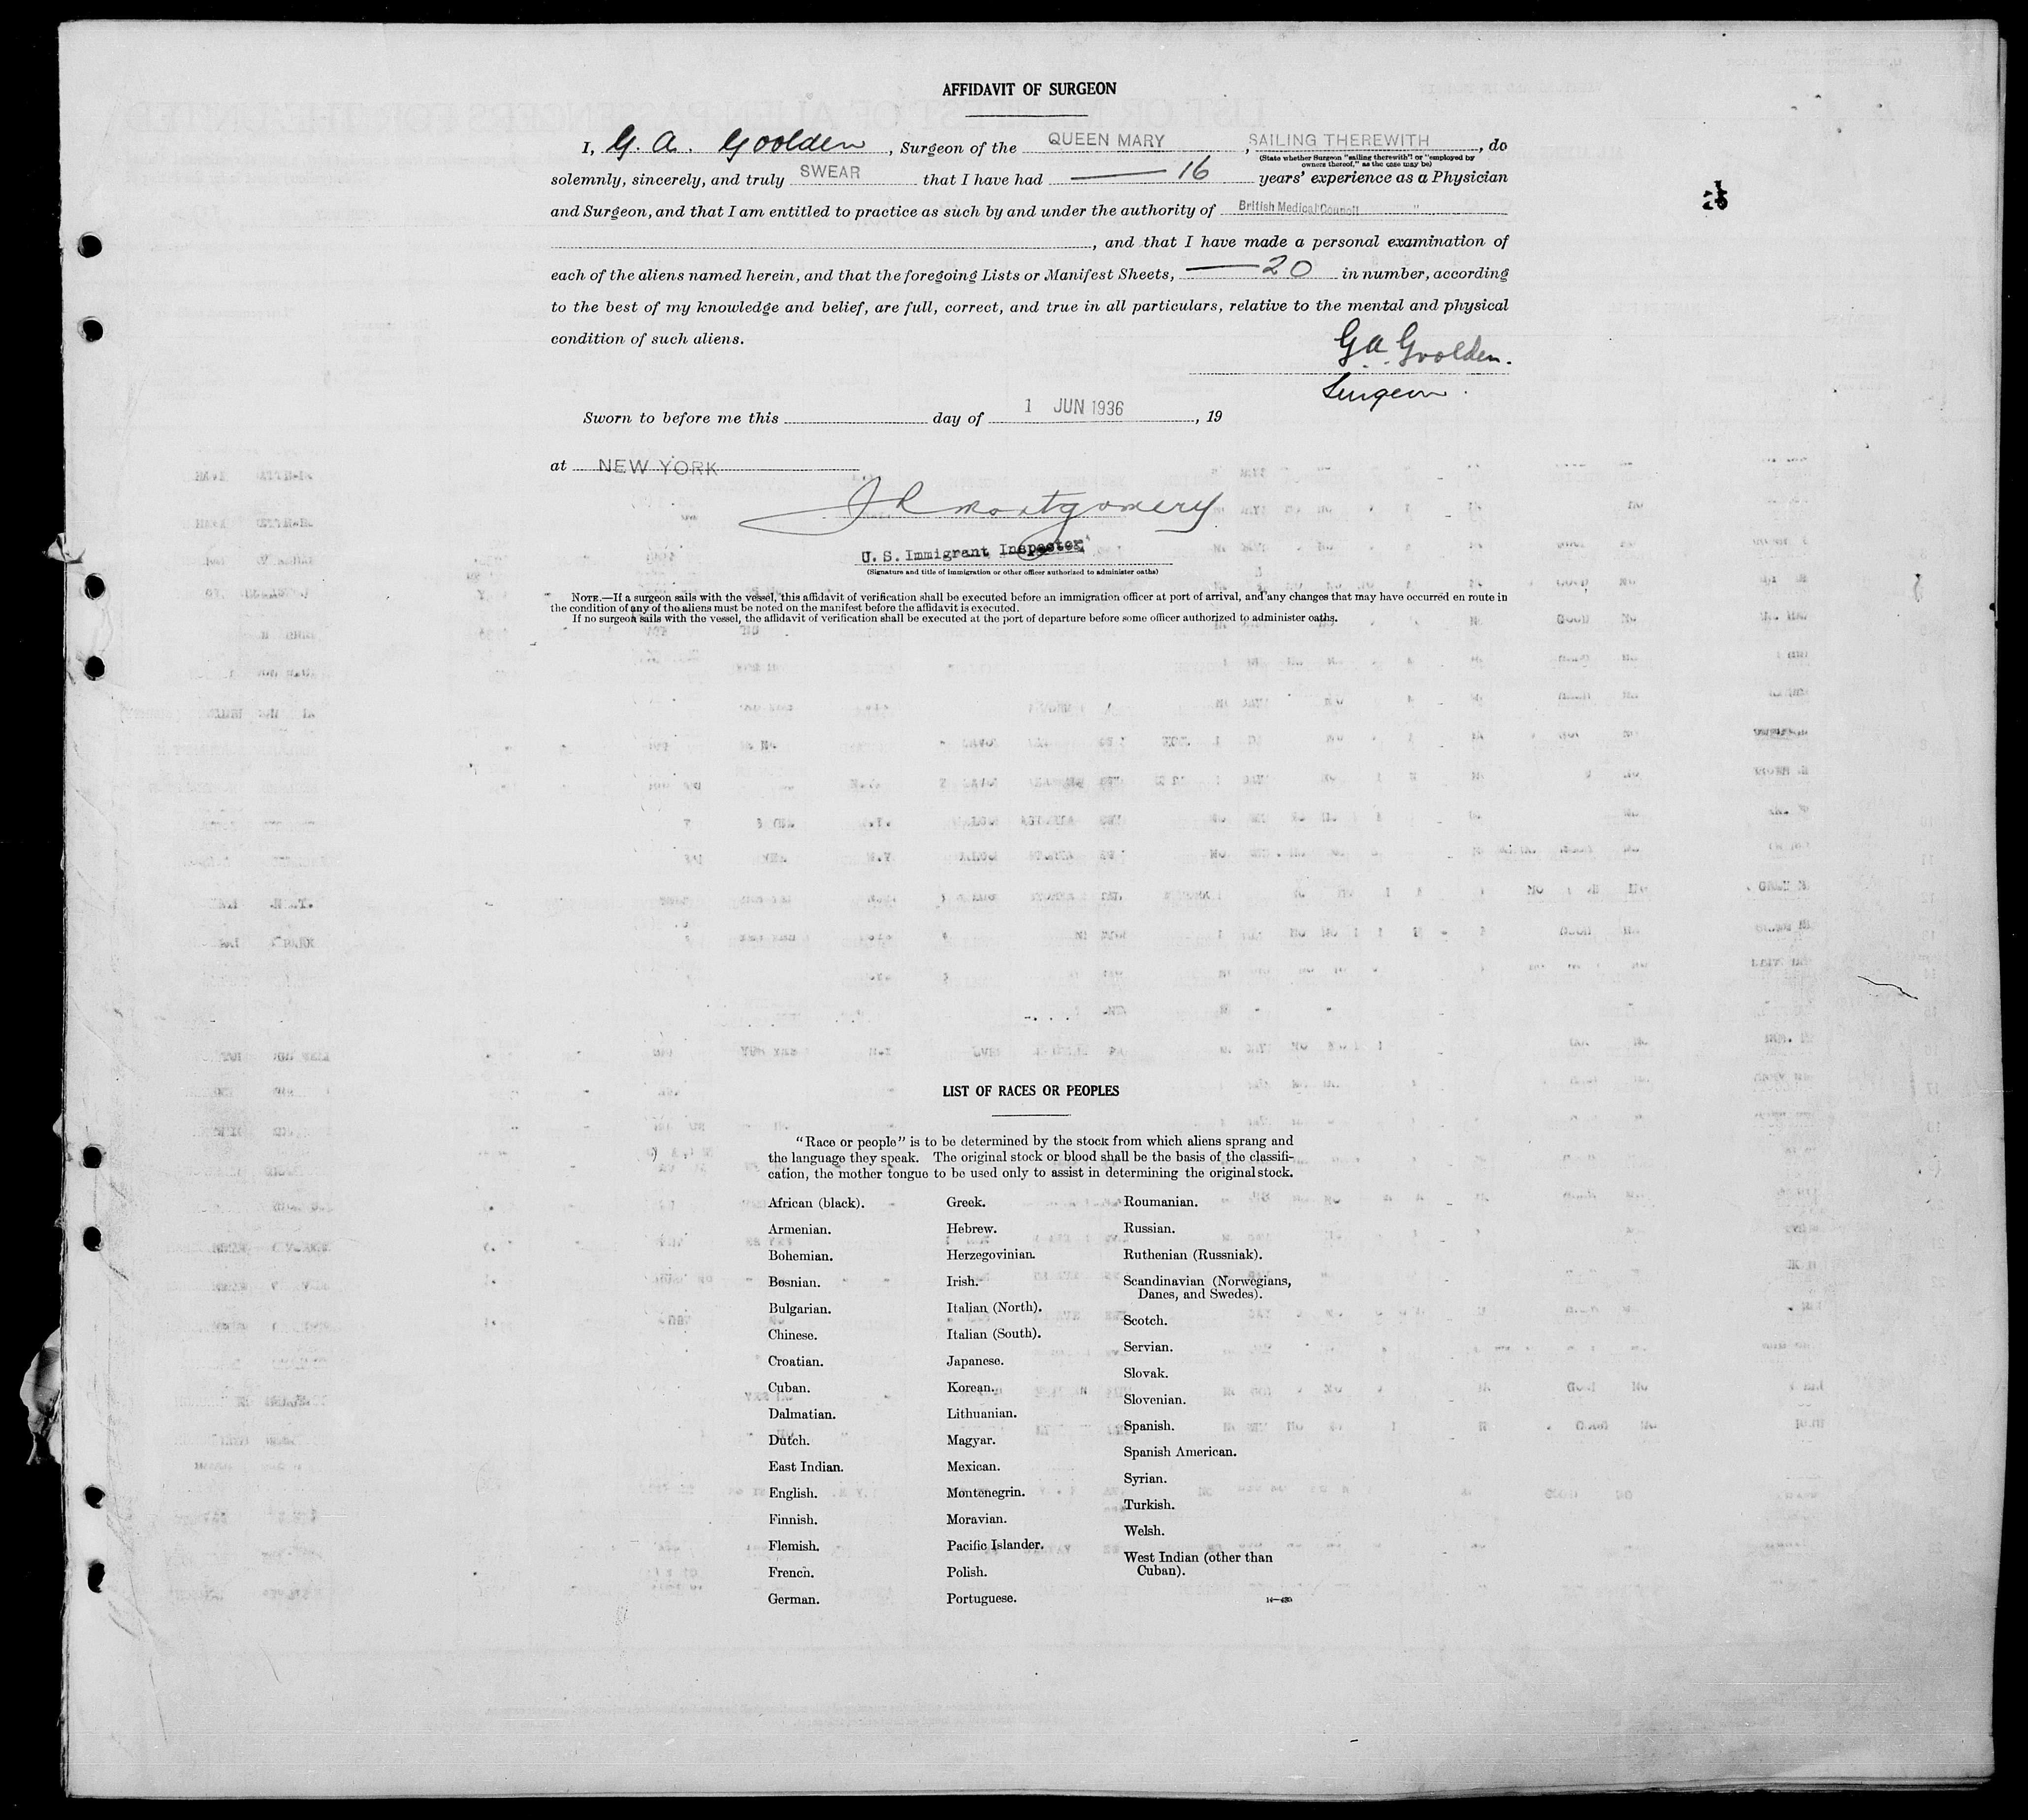 AFFIDAVIT OF SURGEON
I, G. A. Goolden, Surgeon of the QUEEN MARY, SAILING THEREWITH, do
(State whether Surgeon "sailing therewith" or "employed by
owners thereof," as the case may be)
solemnly, sincerely, and truly SWEAR that I have had 16 years' experience as a Physician
and Surgeon, and that I am entitled to practice as such by and under the authority of British Medical Council "
, and that I have made a personal examination of
each of the aliens named herein, and that the foregoing Lists or Manifest Sheets, 20 in number, according
to the best of my knowledge and belief, are full, correct, and true in all particulars, relative to the mental and physical
condition of such aliens.
G A Goolden.
Surgeon.
Sworn to before me this day of 1 JUN 1936, 19
at NEW YORK
J R Montgomery
U. S. Immigrant Inspector
(Signature and title of immigration or other officer authorized to administer oaths)
NOTE.—If a surgeon sails with the vessel, this affidavit of verification shall be executed before an immigration officer at port of arrival, and any changes that may have occurred en route in
the condition of any of the aliens must be noted on the manifest before the affidavit is executed.
If no surgeon sails with the vessel, the affidavit of verification shall be executed at the port of departure before some officer authorized to administer oaths.
LIST OF RACES OR PEOPLES
"Race or people" is to be determined by the stock from which aliens sprang and
the language they speak. The original stock or blood shall be the basis of the classifi-
cation, the mother tongue to be used only to assist in determining the original stock.
African (black).
Armenian.
Bohemian.
Bosnian.
Bulgarian.
Chinese.
Croatian.
Cuban.
Dalmatian.
Dutch.
East Indian.
English.
Finnish.
Flemish.
French.
German.
Greek.
Hebrew.
Herzegovinian.
Irish.
Italian (North).
Italian (South).
Japanese.
Korean.
Lithuanian.
Magyar.
Mexican.
Montenegrin.
Moravian.
Pacific Islander.
Polish.
Portuguese.
Roumanian.
Russian.
Ruthenian (Russniak).
Scandinavian (Norwegians,
Danes, and Swedes).
Scotch.
Servian.
Slovak.
Slovenian.
Spanish.
Spanish American.
Syrian.
Turkish.
Welsh.
West Indian (other than
Cuban).